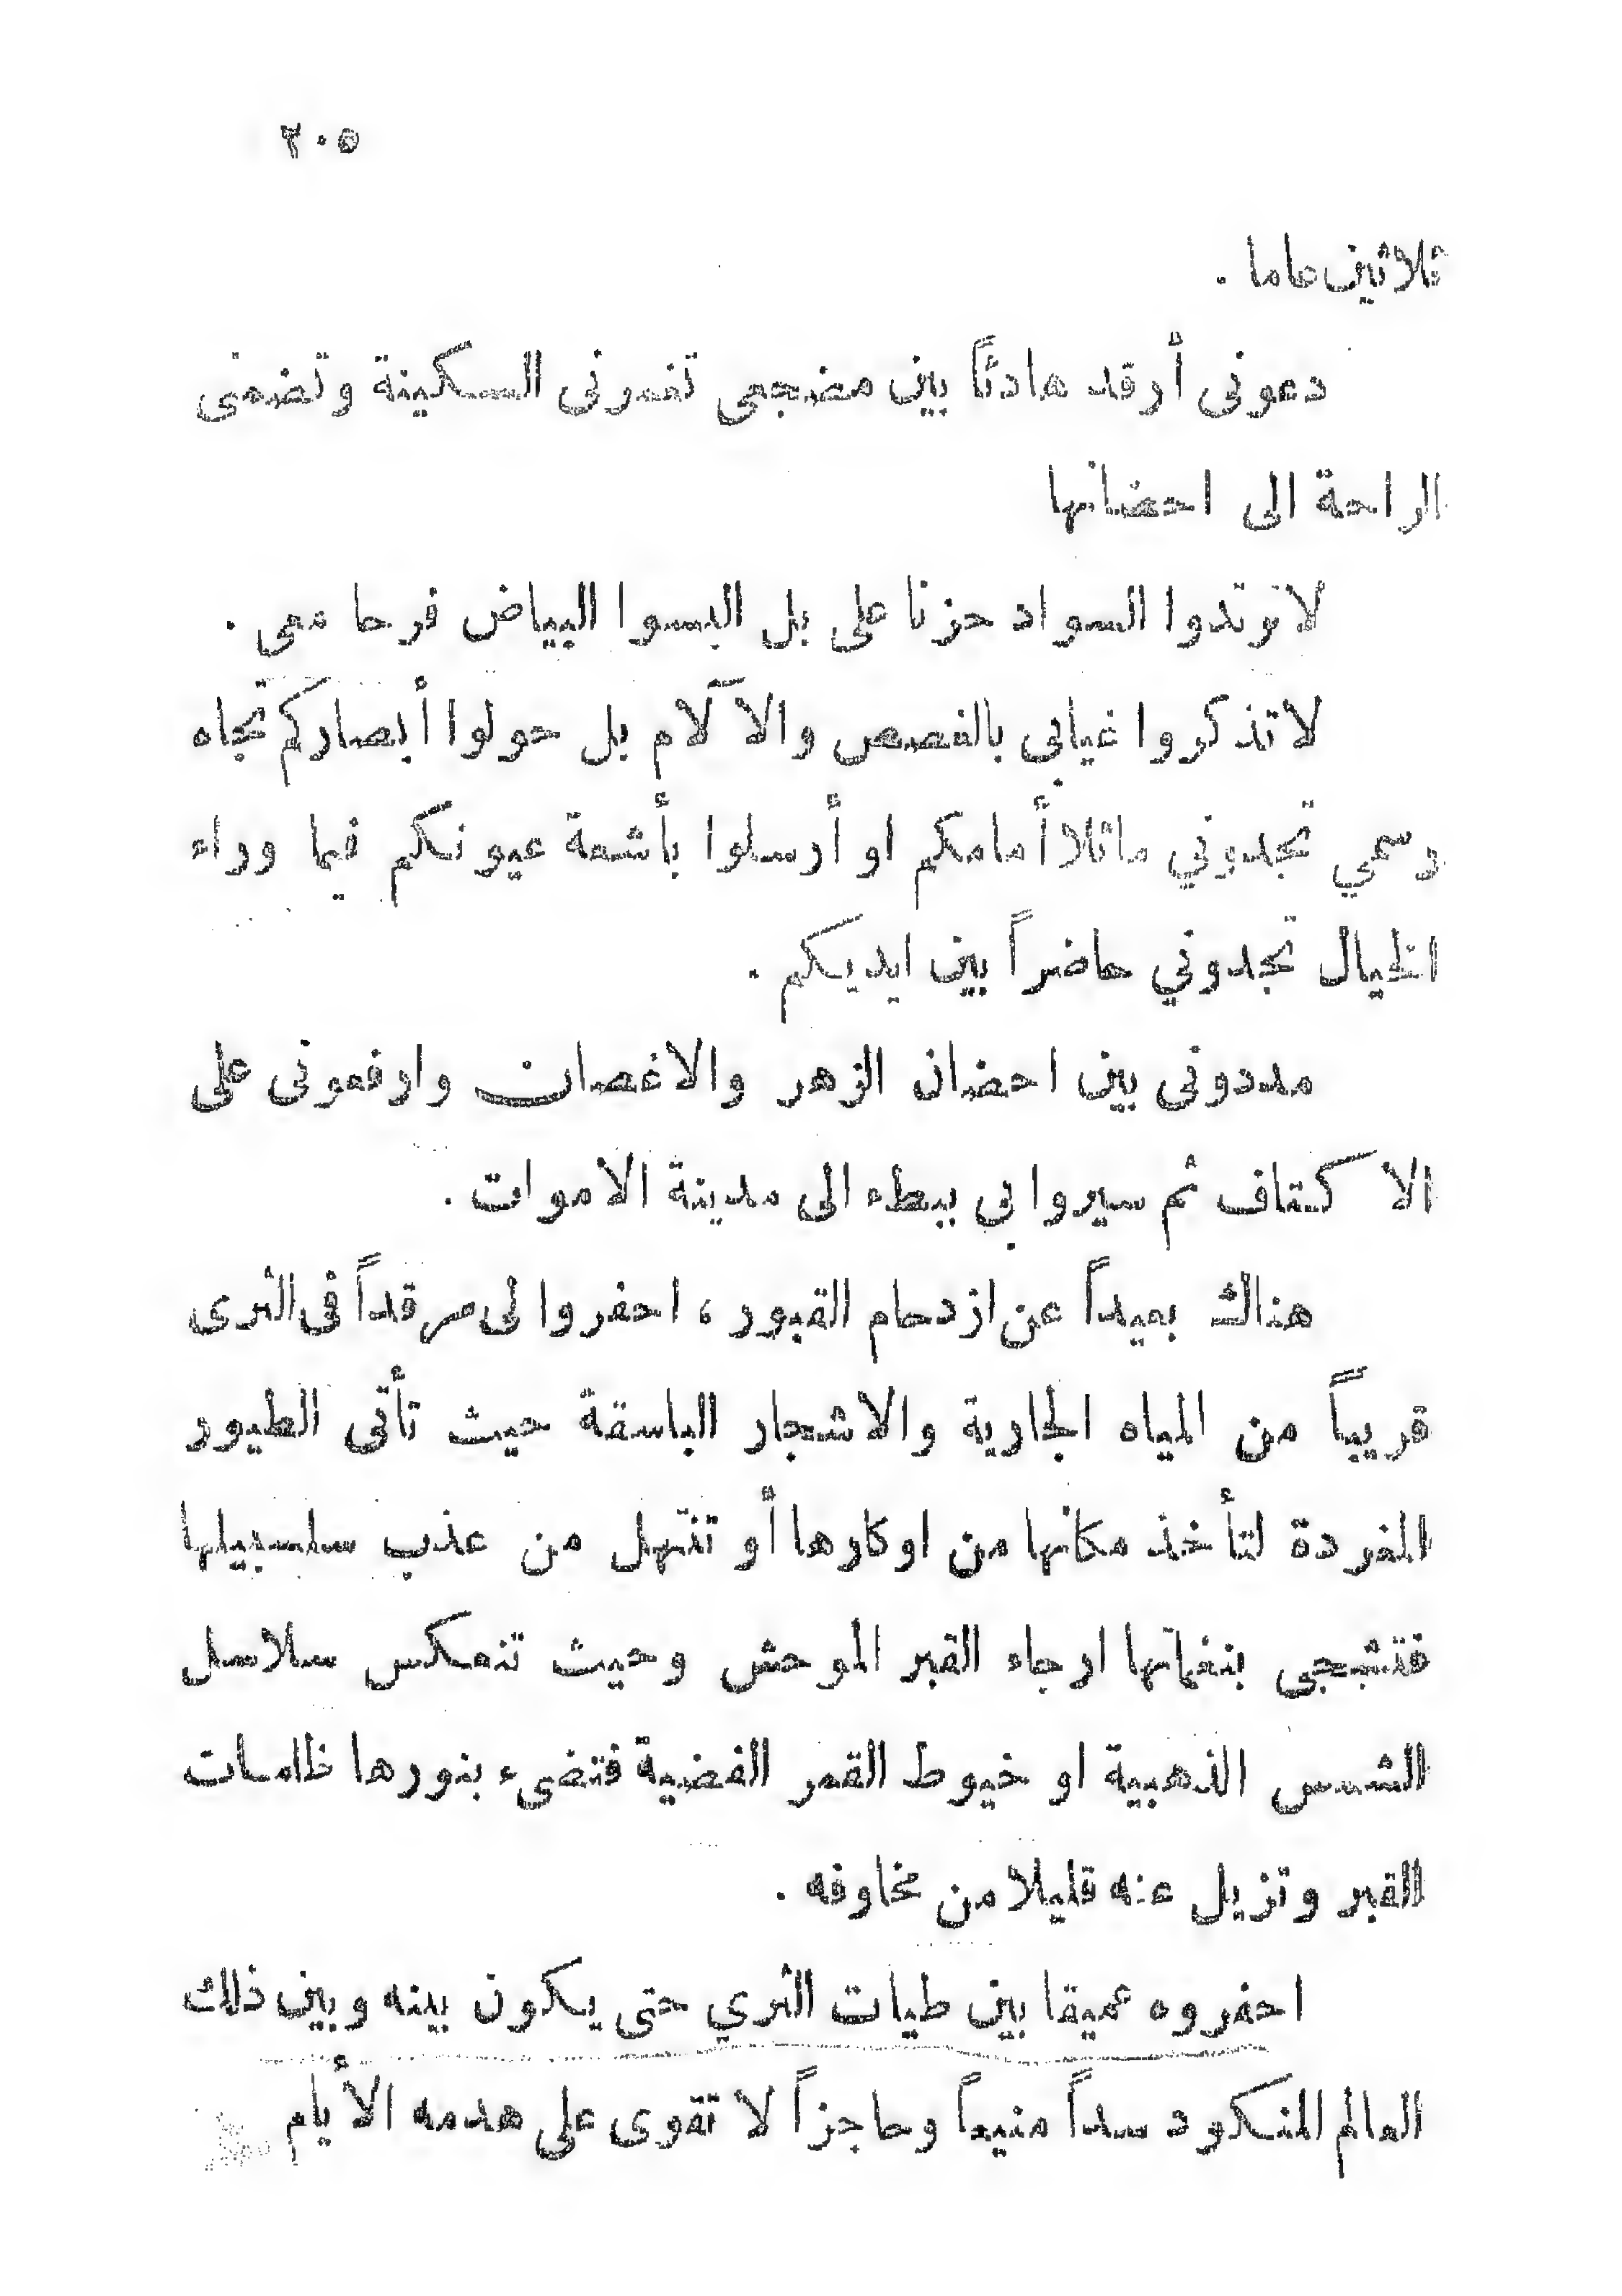 ٢٠٥
ثلاثين عاما .
دعونى أرقد هادئاً بين مضجعى تغمرنى السكينة وتضمنى
الراحة الى احضانها
لا ترتدوا السواد حزنا على بل البسوا البياض فرحا معى .
لا تذكروا غيابي بالغصص والآلام بل حولوا أبصاركم تجاه
رسمي تجدوني ماثلا أمامكم او أرسلوا بأشعة عيونكم فيما وراء
الخيال تجدوني حاضراً بين ايديكم .
مددونى بين احضان الزهر والاغصان وارفعونى على
الاكتاف ثم سيروا بي ببطء الى مدينة الاموات .
هناك بعيداً عن ازدحام القبور ، احفروا لى مرقداً فى الثرى
قريباً من المياه الجارية والاشجار الباسقة حيث تأتى الطيور
المغردة لتأخذ مكانها من اوكارها أو تنتهل من عذب سلسبيلها
فتشجى بنغماتها ارجاء القبر الموحش وحيث تنعكس سلاسل
الشمس الذهبية او خيوط القمر الفضية فتضىء بنورها ظلمات
القبر وتزيل عنه قليلا من مخاوفه .
احفروه عميقا بين طيات الثري حتى يكون بينه وبين ذلك
العالم المنكود سداً منيعاً وحاجزاً لا تقوى على هدمه الأيام